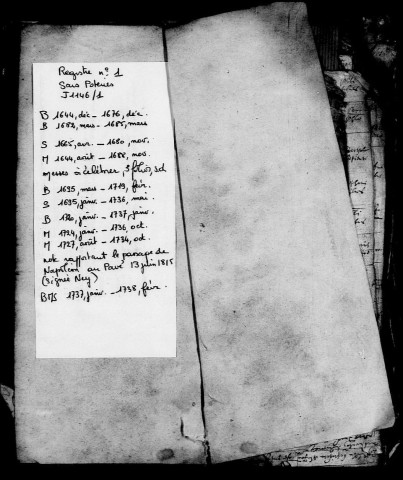 Registre n° 1
Sars Poteries
J1146/1
B 1644, déc - 1676, déc.
B 1682, mars - 1685, mars
S 1665, avr. - 1680, nov.
M 1644, août - 1688, nov.
messes à célébrer,
B 1695, mars - 1719, fév.
S 1695, janv. - 1736, mai.
B 1720, janv. - 1737, janv.
M 1724, janv. - 1736, oct.
M 1727, août - 1734, oct.
note rapportant le passage de
Napoléon au Pavé 13 juin 1815
(signée Ney)
BMS 1737, janv. - 1738, févr.